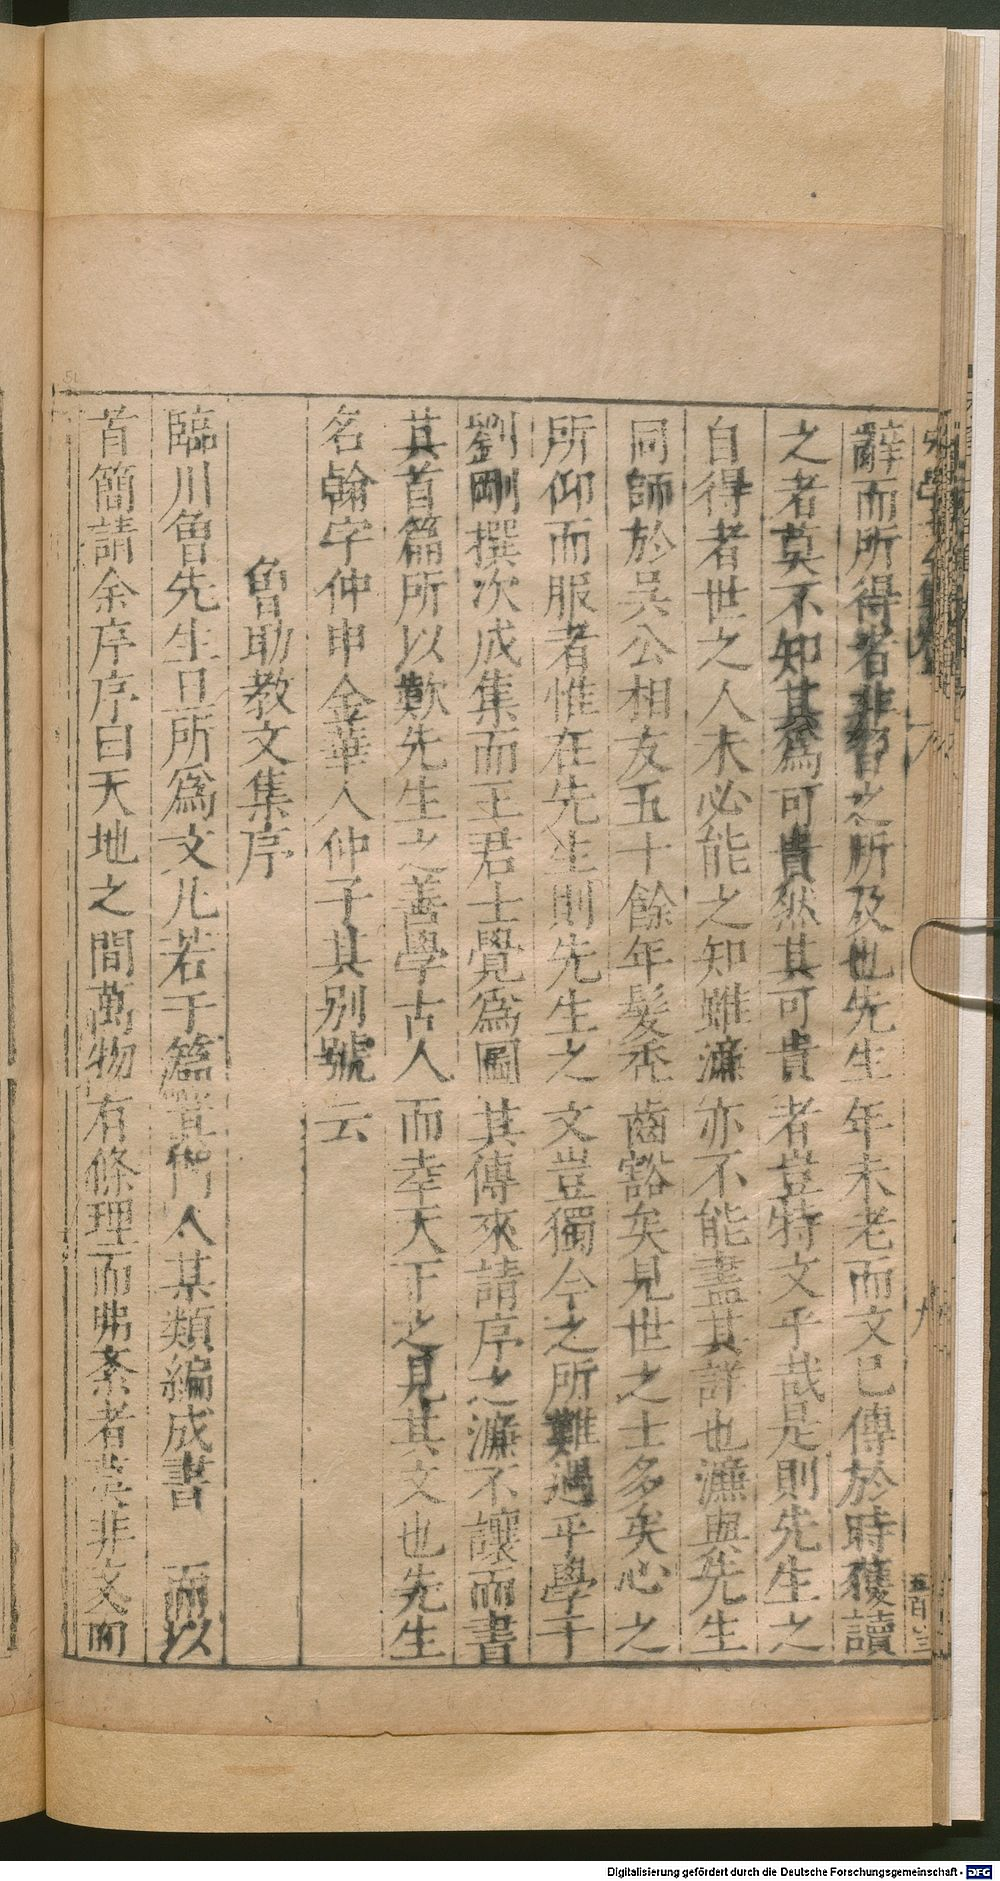 辭而所得者非智之所及也先生年未老而文已傳於時獲讀
之者莫不知其為可貴然其可貴者豈特文乎哉是則先生之
自得者世之人未必能之知雖濂亦不能盡其詳也濂與先生
同師於吳公相友五十餘年髮禿齒豁矣見世之士多矣心之
所仰而服者惟在先生則先生之文豈獨今之所難遇乎學子
劉剛撰次成集而王君士覺為圖其傳來請序之濂不讓而書
其首篇所以歎先生之善學古人而幸天下之見其文也先生
名翰字仲申金華人仲子其別號云
魯助教文集序
臨川魯先生旦所為文凡若干篇其門人某類編成書 而以
首簡請余序序曰天地之間萬物有條理而弗紊者莫非文而
五百三
Digitalisierung gefördert durch die Deutsche Forschungsgemeinschaft - DFG